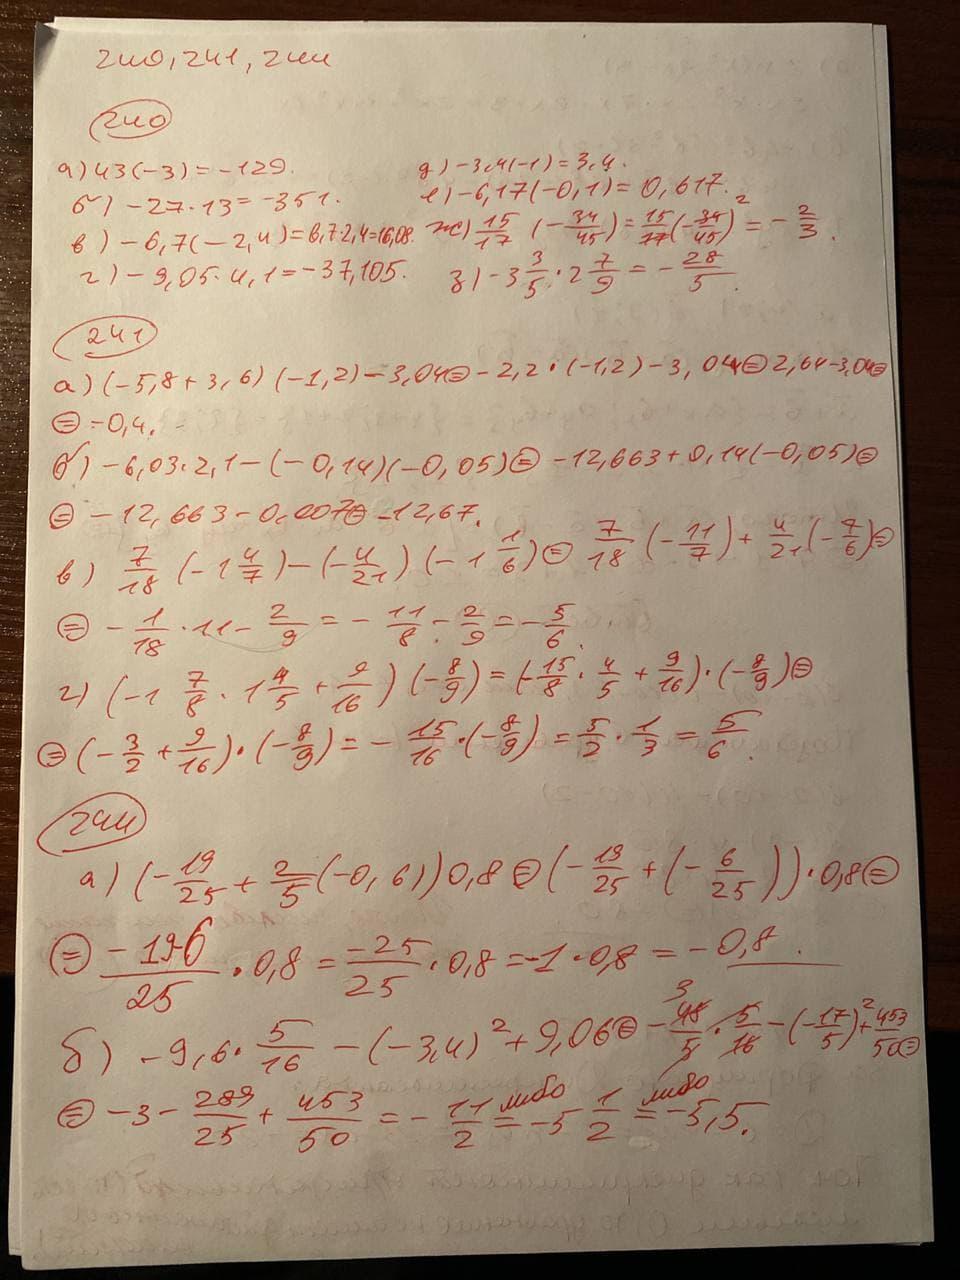 240, 241, 244
240
а) 43(-3) = -129.
б) -27·13 = -351.
в) -6,7(-2,4) = 6,7·2,4 = 16,08.
г) -9,05·4,1 = -37,105.
д) -3,4(-1) = 3,4.
е) -6,17(-0,1) = 0,617.
ж) 15/17 (-34/45) = 15/17 (-34/45)² = -2/3.
з) -3 3/5 · 2 7/9 = -28/5.
241
а) (-5,8 + 3,6) (-1,2) - 3,04 = -2,2·(-1,2) - 3,04 = 2,64 - 3,04 =
= -0,4.
б) -6,03·2,1 - (-0,14)(-0,05) = -12,663 + 0,14(-0,05) =
= -12,663 - 0,007 = -12,67.
в) 7/18 (-1 4/7) - (-4/21) (-1 1/6) = 7/18 (-11/7) + 4/21 (-7/6) =
= -1/18 · 11 - 2/9 = -11/8 - 2/9 = -5/6.
г) (-1 7/8 · 1 4/5 + 9/16) (-8/9) = (-15/8 · 4/5 + 9/16)·(-8/9) =
= (-3/2 + 9/16)·(-8/9) = -15/16·(-8/9) = 5/2 · 1/3 = 5/6.
244
а) (-19/25 + 2/5 (-0,6)) 0,8 = (-19/25 + (-6/25))·0,8 =
= -19-6/25 · 0,8 = -25/25 · 0,8 = -1·0,8 = -0,8.
б) -9,6·5/16 - (-3,4)² + 9,06 = -48/5 · 5/16 - (-17/5)² + 453/50 =
= -3 - 289/25 + 453/50 = -11/2 либо = -5 1/2 либо = -5,5.